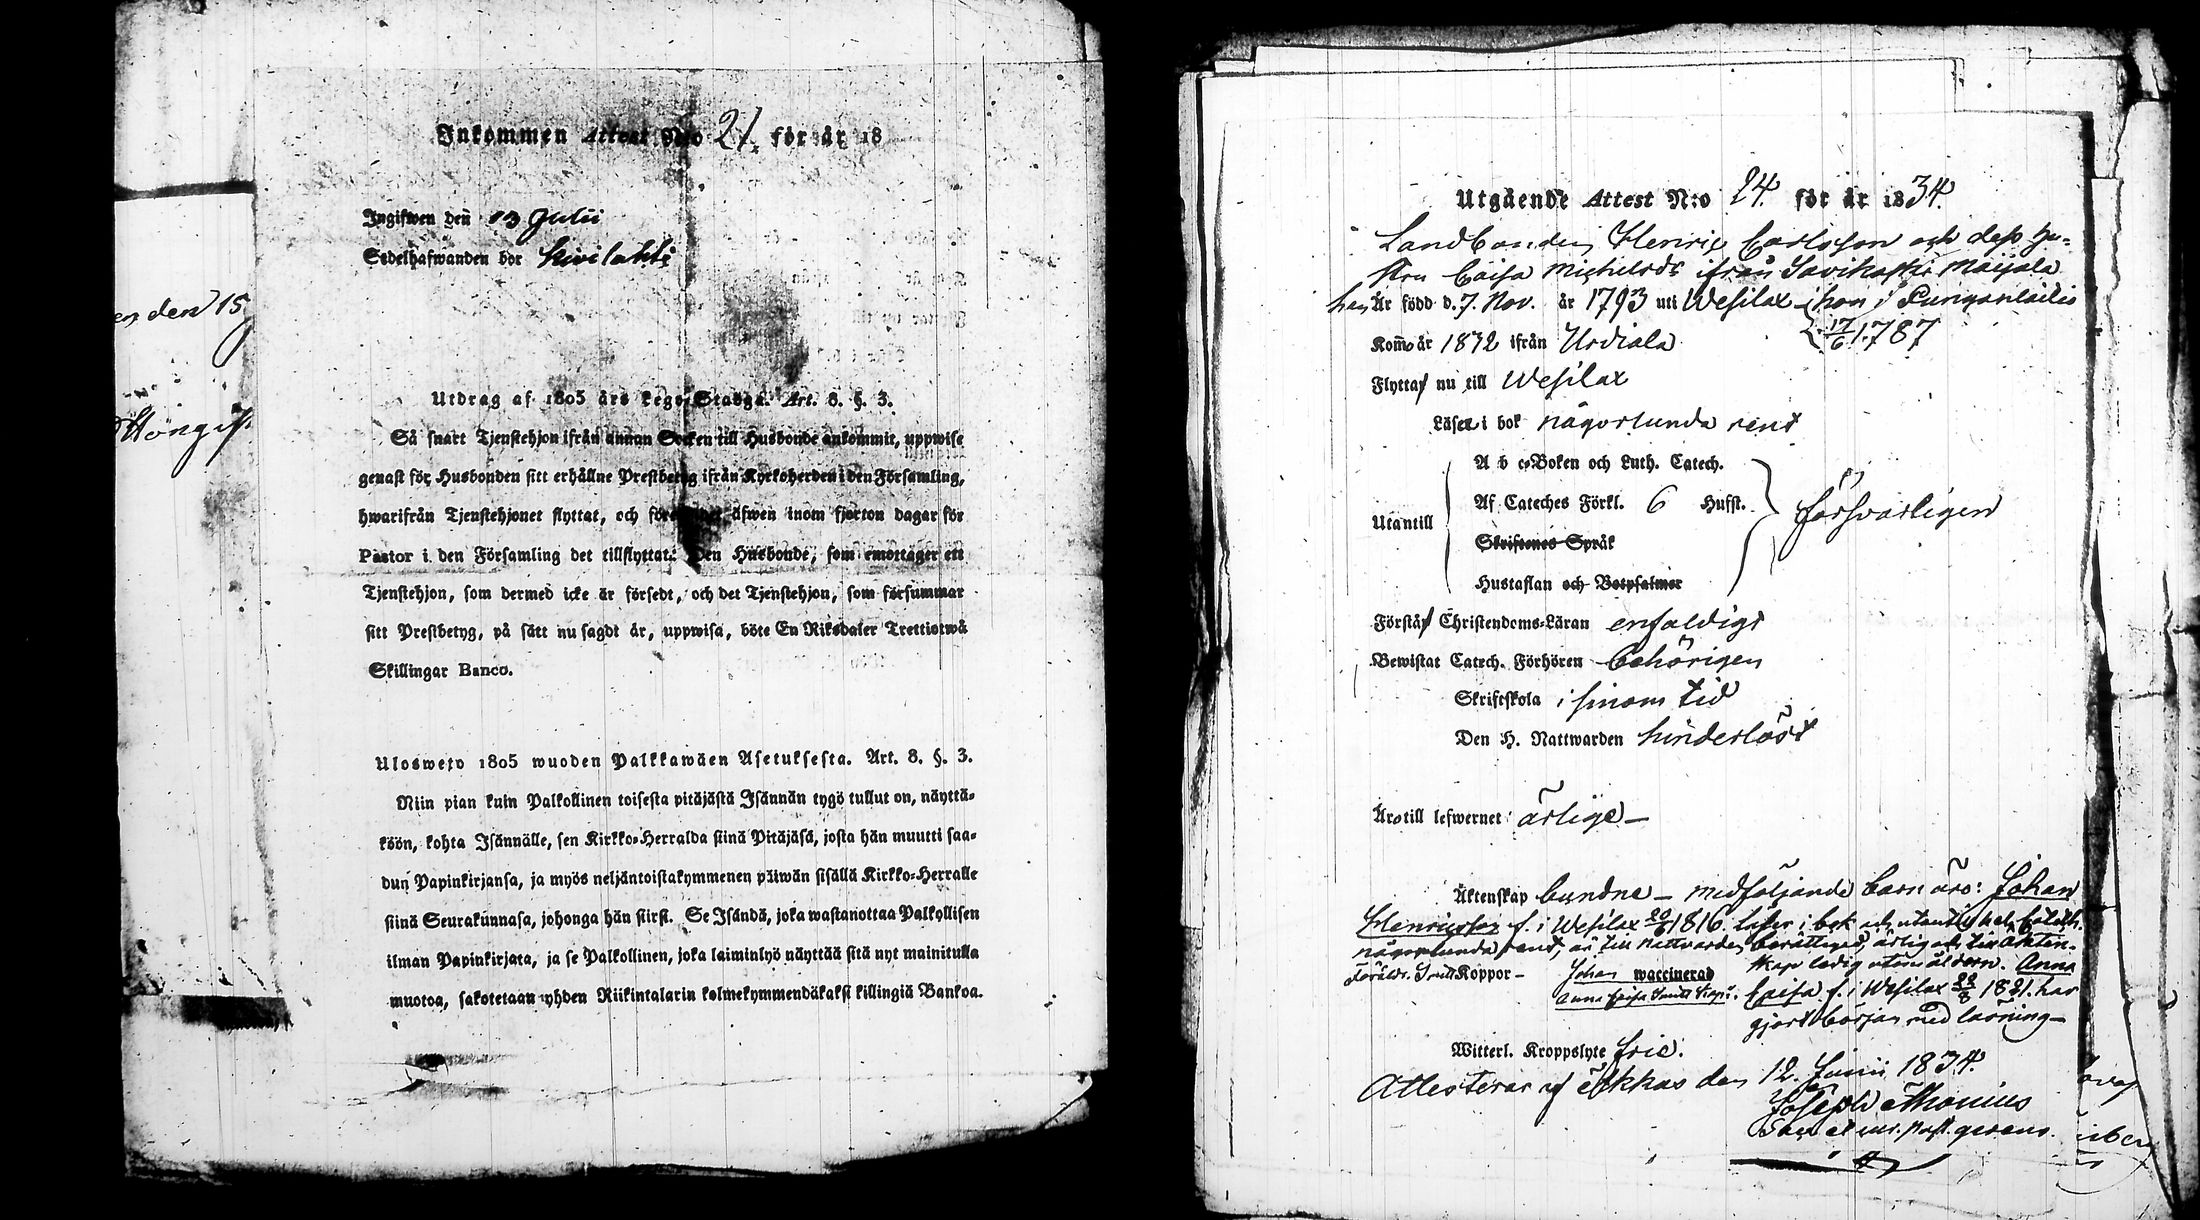 Inkommen Attest N:o 21. för år 18
Ingifwen den 13 Julii
Sedelhafwanden bor Kivilahti
en den 15
Utdrag af 1805 års Lego-Stadga. Art. 8. §. 3.
Så snart Tjenstehjon ifrån annan Socken till Husbonde ankommit, uppwise
genast för Husbonden sitt erhållne Prestbetyg ifrån Kyrkoherden i den Församling,
hwarifrån Tjenstehjonet flyttat, och äfwen inom fjorton dagar för
Pastor i den Församling det tillflyttat. Den Husbonde, som emottager ett
Tjenstehjon, som dermed icke är försedt, och det Tjenstehjon, som försummar
sitt Prestbetyg, på sätt nu sagdt är, uppwisa, böte En Riksdaler Trettiotwå
Skillingar Banco.
Ulosweto 1805 wuoden Palkkawäen Asetuksesta. Art. 8. §. 3.
Niin pian kuin Palkollinen toisesta pitäjästä Isännän tygö tullut on, näyttä-
köön, kohta Isännälle, sen Kirkko-Herralda siinä Pitäjäsä, josta hän muutti saa-
dun Papinkirjansa, ja myös neljäntoistakymmenen päiwän sisällä Kirkko-Herralle
siinä Seurakunnasa, johonga hän siirsi. Se Isändä, joka wastanottaa Palkollisen
ilman Papinkirjata, ja se Palkollinen, joka laiminlyö näyttää sitä nyt mainitulla
muotoa, sakotetaan yhden Riikintalarin kolmekymmendäkaksi killingiä Bankoa.
Utgående Attest N:o 24. för år 1834.
Landbonden Henric Carlsson och dess hu-
stru Caisa Michelsdr ifrån Savikoski Maijala
han Är född d. 7. Nov. år 1793 uti Wesilax hon i Punganlaitio
17/6 1787
Kom år 1832 ifrån Urdiala
Flytta nu till Wesilax
Läser i bok någorlunda rent
A b c-Boken och Luth. Catech.
Af Cateches Förkl. 6 Hufst.
Utantill försvarligen
Skriftenes Språk
Hustaflan och Botpsalmer
Förstå Christendoms-Läran enfaldigt
Bewistat Catech. Förhören behörigen
Skriftskola i sinom tid
Den H. Nattwarden hinderlöst
Äro till lefwernet ärlige –
Äktenskap bundne – medföljande barn äro: Johan
Henricsson f. i Wesilax 20/6 1816. läser i bok och utantill
någorlunda rent, är till Nattvarden berättigad, ärlig och till äkten-
skap ledig Anna
Koppor – Johan waccinerad
Caisa f. i Wesilax 1821. har
gjort början med läsning –
Witterl. Kroppslyte frie.
Attesterar af Akkas den 12. Junii 1834.
Joseph Monius